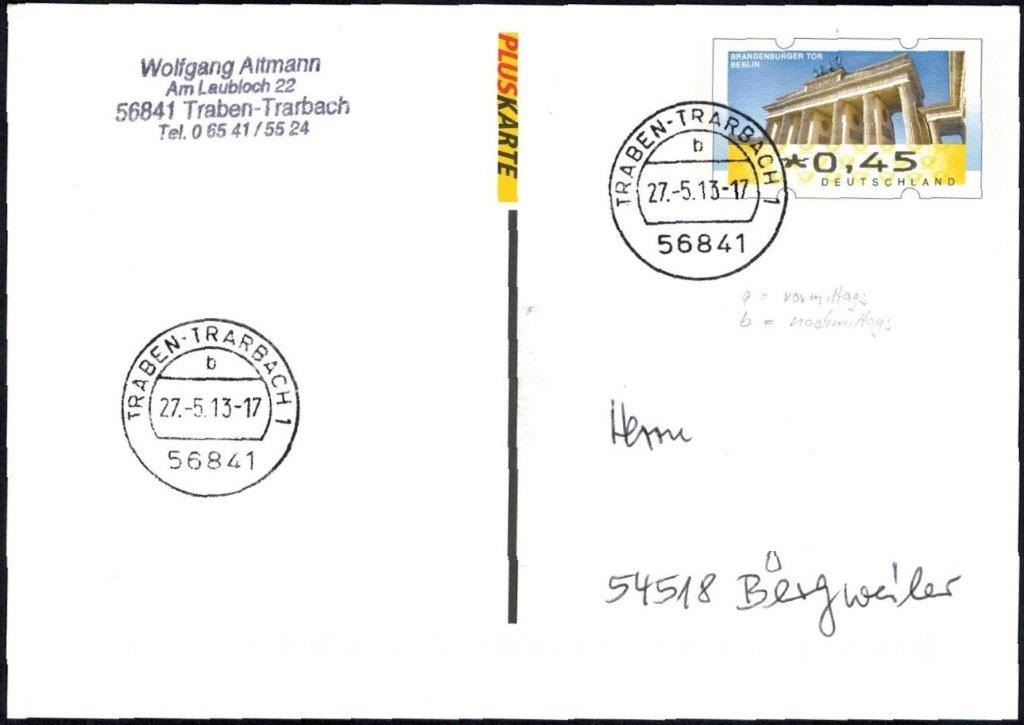 Wolfgang Altmann
Am Laubloch 22
56841 Traben-Trarbach
Tel. 0 65 41 / 55 24
PLUSKARTE
BRANDENBURGER TOR
BERLIN
*0,45
DEUTSCHLAND
TRABEN-TRARBACH 1
b
27.-5.13-17
56841
a = vormittags
b = nachmittags
TRABEN-TRARBACH 1
b
27.-5.13-17
56841
Herrn
54518 Bergweiler